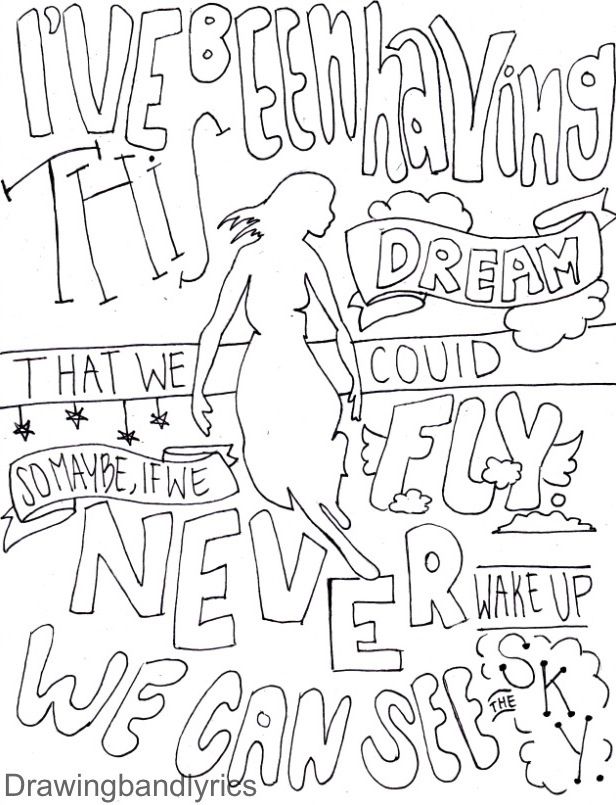 I'VE BEEN having
THiS
DREAM
THAT WE COUlD
FLY.
SO MAYBE, IF WE
NEVER
WAKE UP
WE CAN SEE THE SKY.
Drawingbandlyrics